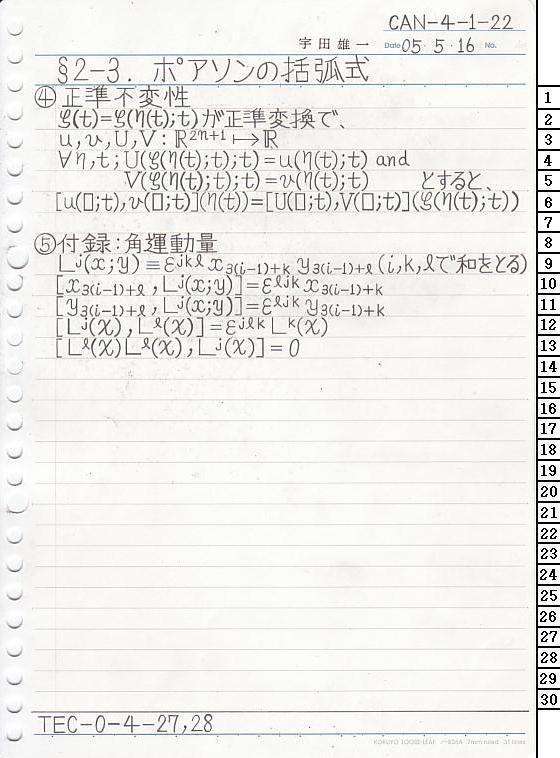 CAN-4-1-22
宇田雄一 Date 05・5・16 No.
§2-3. ポアソンの括弧式
④正準不変性
ξ(t)=ξ(η(t);t)が正準変換で、
u,v,U,V:ℝ²ⁿ⁺¹↦ℝ
∀η,t;U(ξ(η(t);t);t)=u(η(t);t) and
V(ξ(η(t);t);t)=v(η(t);t) とすると、
[u(□;t),v(□;t)](η(t))=[U(□;t),V(□;t)](ξ(η(t);t))
⑤付録:角運動量
Lʲ(x;y)≡εʲᵏˡ x₃₍ᵢ₋₁₎₊ₖ y₃₍ᵢ₋₁₎₊ℓ(i,k,ℓで和をとる)
[x₃₍ᵢ₋₁₎₊ℓ,Lʲ(x;y)]=εˡʲᵏ x₃₍ᵢ₋₁₎₊ₖ
[y₃₍ᵢ₋₁₎₊ℓ,Lʲ(x;y)]=εˡʲᵏ y₃₍ᵢ₋₁₎₊ₖ
[Lʲ(χ),Lˡ(χ)]=εʲˡᵏ Lᵏ(χ)
[Lˡ(χ)Lˡ(χ),Lʲ(χ)]=0
TEC-0-4-27,28
KOKUYO LOOSE-LEAF ノ-836A 7mm ruled 31 lines
1
2
3
4
5
6
7
8
9
10
11
12
13
14
15
16
17
18
19
20
21
22
23
24
25
26
27
28
29
30